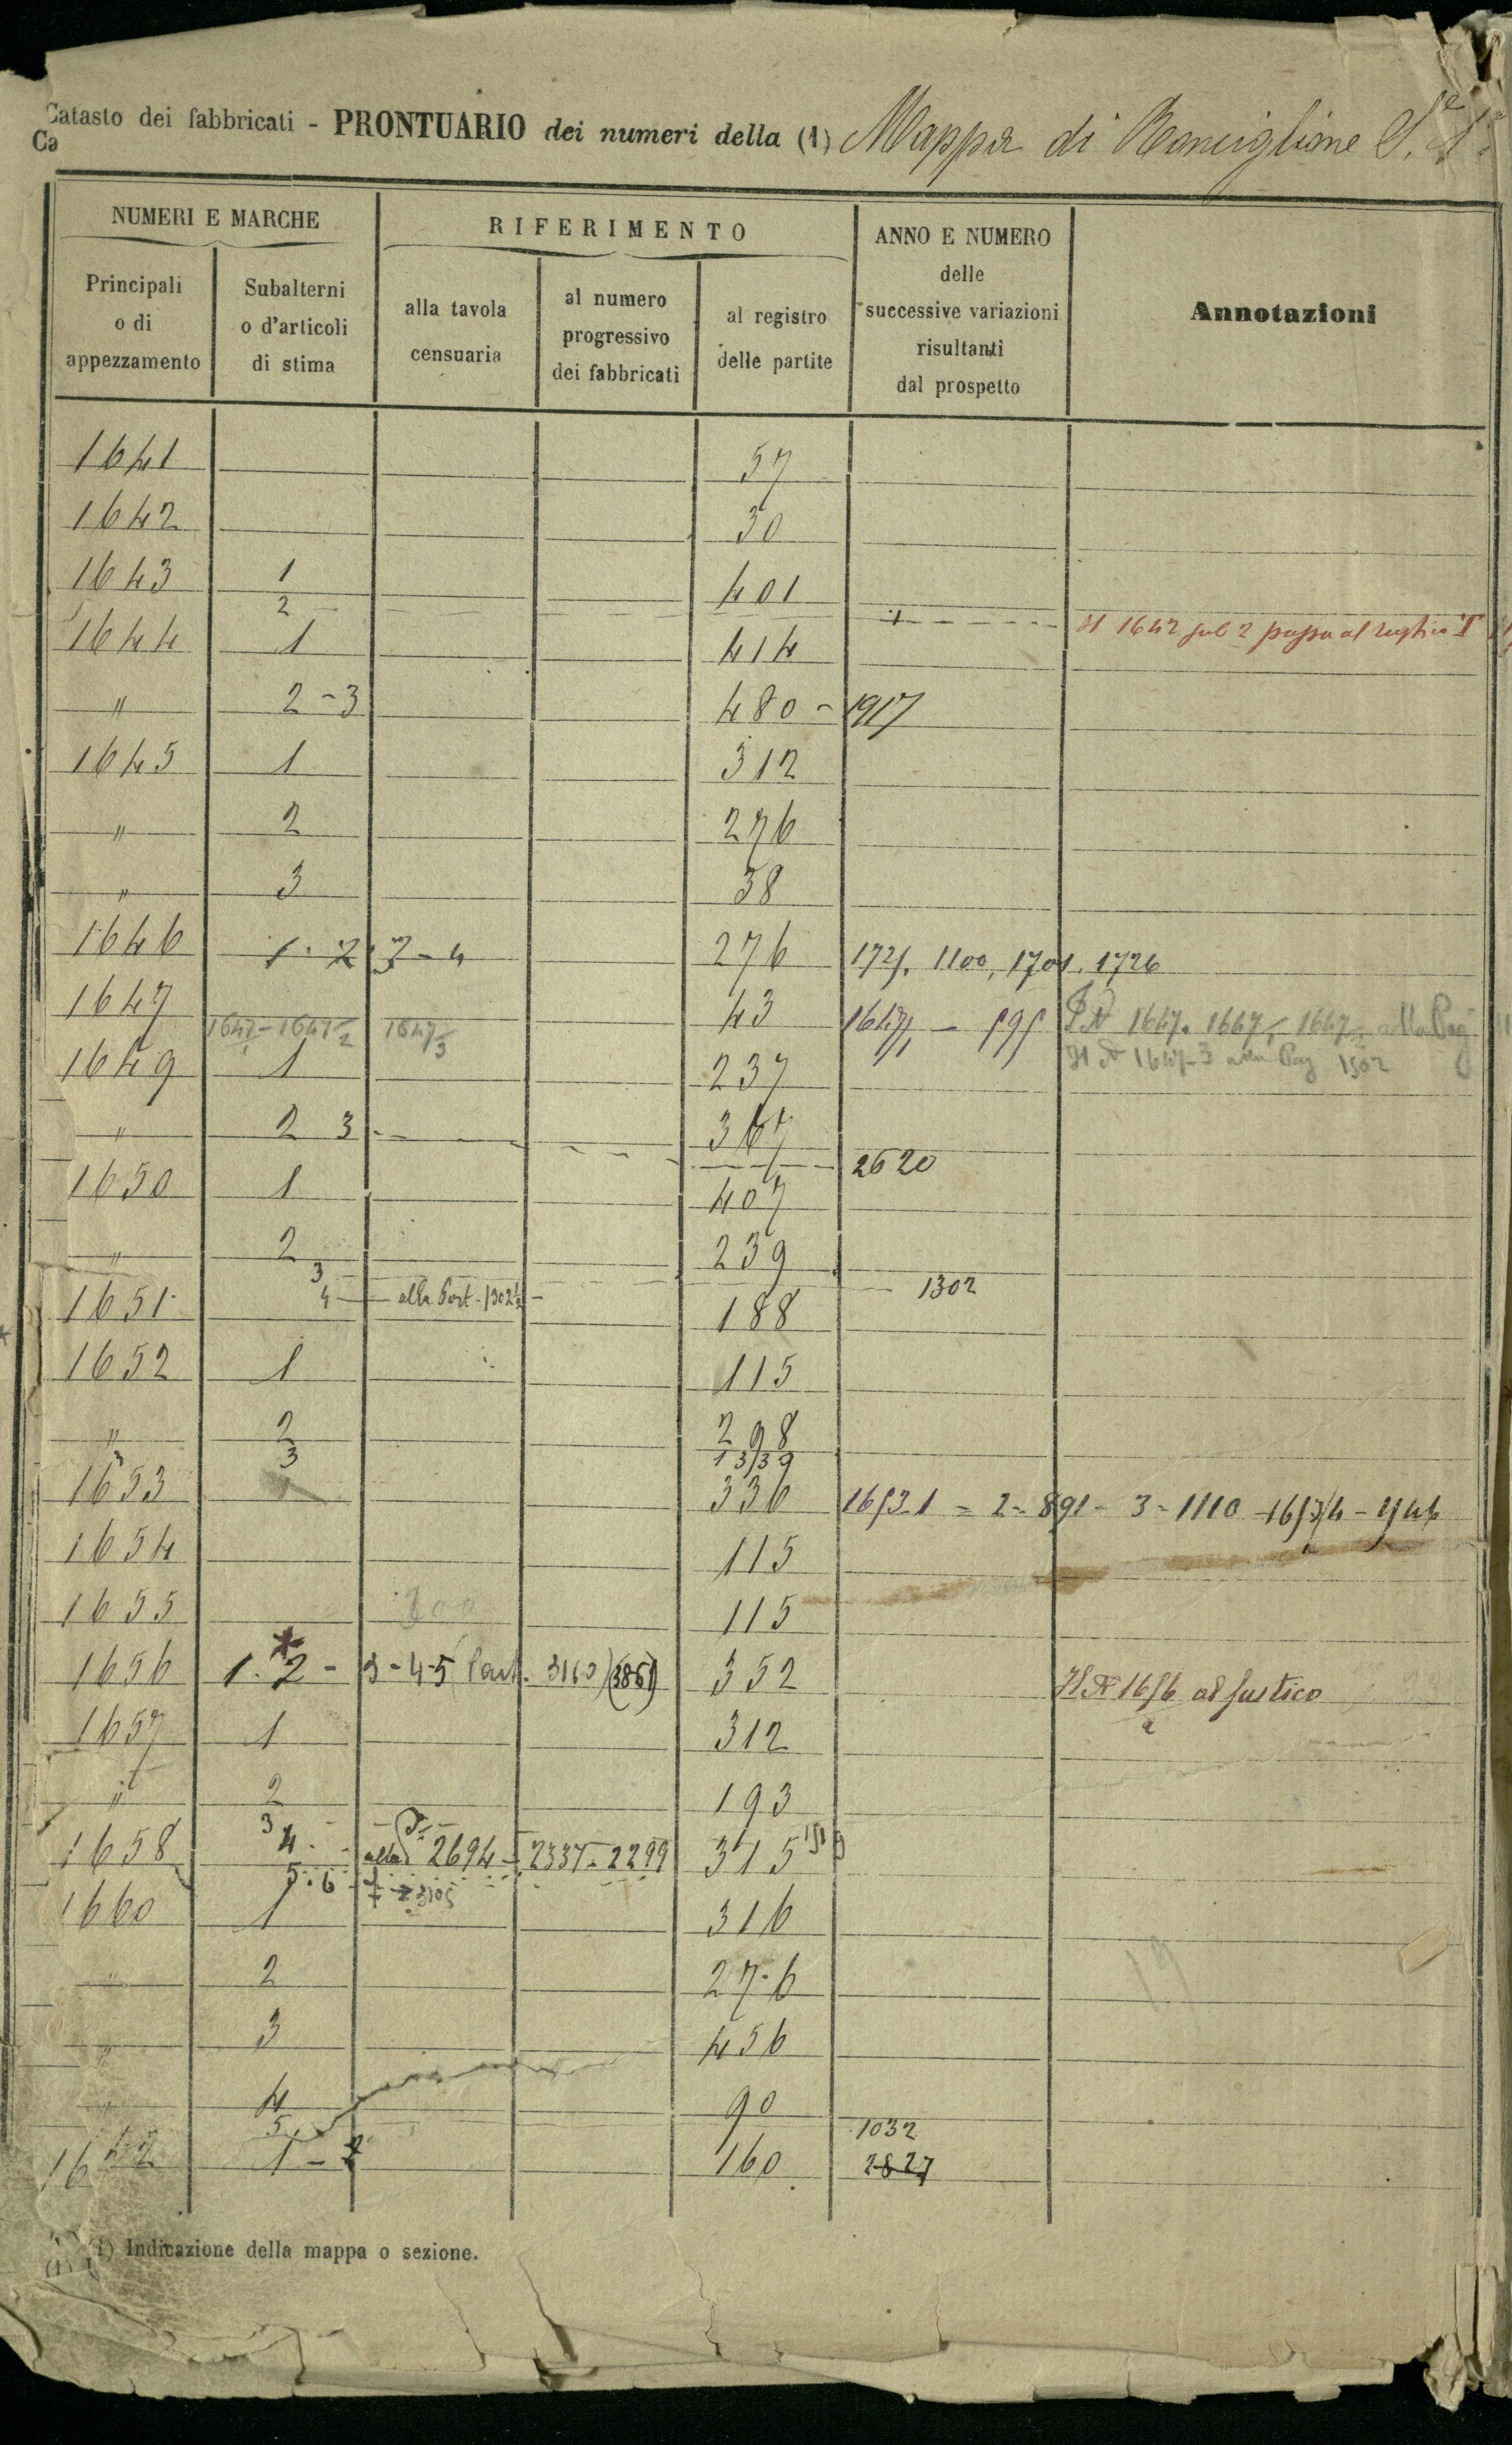 Catasto dei fabbricati - PRONTUARIO dei numeri della (1) Mappa di Ronciglione S.e 1.a
Ca
NUMERI E MARCHE
RIFERIMENTO
ANNO E NUMERO
delle
successive variazioni
risultanti
dal prospetto
Annotazioni
Principali
o di
appezzamento
Subalterni
o d'articoli
di stima
alla tavola
censuaria
al numero
progressivo
dei fabbricati
al registro
delle partite
1641 57
1642 30
1643 1 401
2
1644 1 414
Il 1642 sub 2 passa al rustico
" 2 - 3 480 - 1917
1645 1 312
" 2 276
" 3 38
1646 1. 2 3 - 4 276 1721. 1100, 1701. 1726
1647 43 1647/1 - 595
1647/1 - 1647/2 1647/3
Il N 1647-3 alla Pag 1502
1649 1 237
" 2 3 367
2620
1650 1 407
" 2 239
3
1302
4 alla Part. 1302 1/2
1651 188
1652 1 115
" 2 298
" 3 1339
1653 1 336 1653.1 = 2 - 891 - 3 - 1110 - 1653/4 -
1654 115
1655 300 115
1656 1. 2 - 3 - 4-5 Part. 3160 (3861) 352 Il N 1656 al rustico
2
1657 1 312
" 2 193
3
1658 4 alla P. 2694 - 2337 - 2299 315
5. 6
1660 1 316
" 2 276
" 3 456
19
" 4 90
5
1032
1662 1 - 2 160 2827
(1) Indicazione della mappa o sezione.